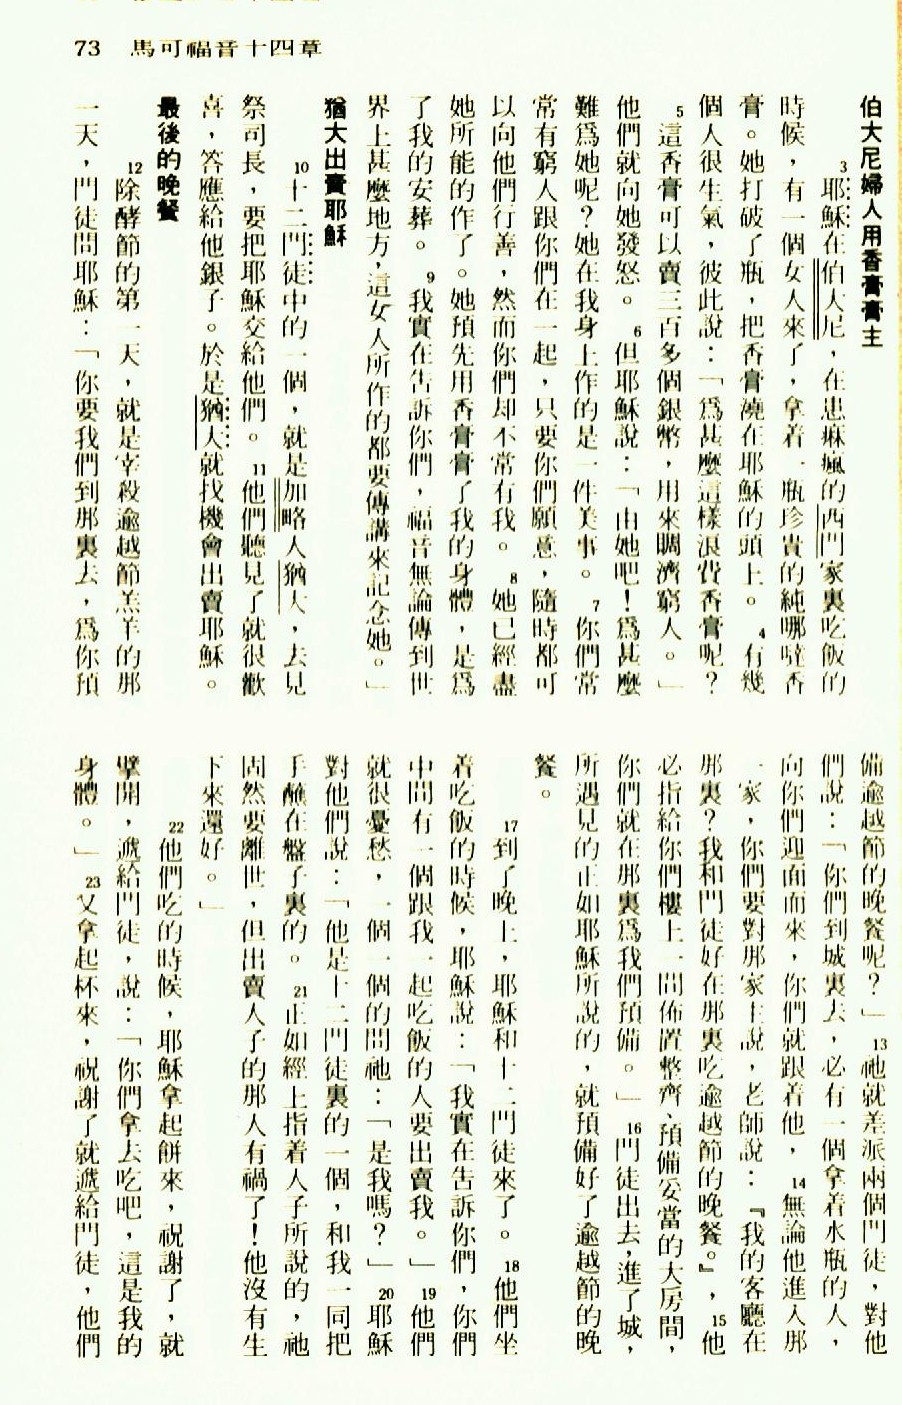 73 馬可福音十四章
伯大尼婦人用香膏膏主
3耶穌在伯大尼，在患痳瘋的西門家裏吃飯的
時候，有一個女人來了，拿着一瓶珍貴的純哪噠香
膏。她打破了瓶，把香膏澆在耶穌的頭上。4有幾
個人很生氣，彼此說：「爲甚麼這樣浪費香膏呢？
5這香膏可以賣三百多個銀幣，用來賙濟窮人。」
他們就向她發怒。6但耶穌說：「由她吧！爲甚麼
難爲她呢？她在我身上作的是一件美事。7你們常
常有窮人跟你們在一起，只要你們願意，隨時都可
以向他們行善，然而你們却不常有我。8她已經盡
她所能的作了。她預先用香膏膏了我的身體，是爲
了我的安葬。9我實在告訴你們，福音無論傳到世
界上甚麼地方，這女人所作的都要傳講來記念她。」
猶大出賣耶穌
10十二門徒中的一個，就是加略人猶大，去見
祭司長，要把耶穌交給他們。11他們聽見了就很歡
喜，答應給他銀子。於是猶大就找機會出賣耶穌。
最後的晚餐
12除酵節的第一天，就是宰殺逾越節羔羊的那
一天，門徒問耶穌：「你要我們到那裏去，爲你預
備逾越節的晚餐呢？」13祂就差派兩個門徒，對他
們說：「你們到城裏去，必有一個拿着水瓶的人，
向你們迎面而來，你們就跟着他，14無論他進入那
一家，你們要對那家主說，老師說：『我的客廳在
那裏？我和門徒好在那裏吃逾越節的晚餐。』，15他
必指給你們樓上一間佈置整齊、預備妥當的大房間，
你們就在那裏爲我們預備。」16門徒出去，進了城，
所遇見的正如耶穌所說的，就預備好了逾越節的晚
餐。
17到了晚上，耶穌和十二門徒來了。18他們坐
着吃飯的時候，耶穌說：「我實在告訴你們，你們
中間有一個跟我一起吃飯的人要出賣我。」19他們
就很憂愁，一個一個的問祂：「是我嗎？」20耶穌
對他們說：「他是十二門徒裏的一個，和我一同把
手蘸在盤子裏的。21正如經上指着人子所說的，祂
固然要離世，但出賣人子的那人有禍了！他沒有生
下來還好。」
22他們吃的時候，耶穌拿起餅來，祝謝了，就
擘開，遞給門徒，說：「你們拿去吃吧，這是我的
身體。」23又拿起杯來，祝謝了就遞給門徒，他們